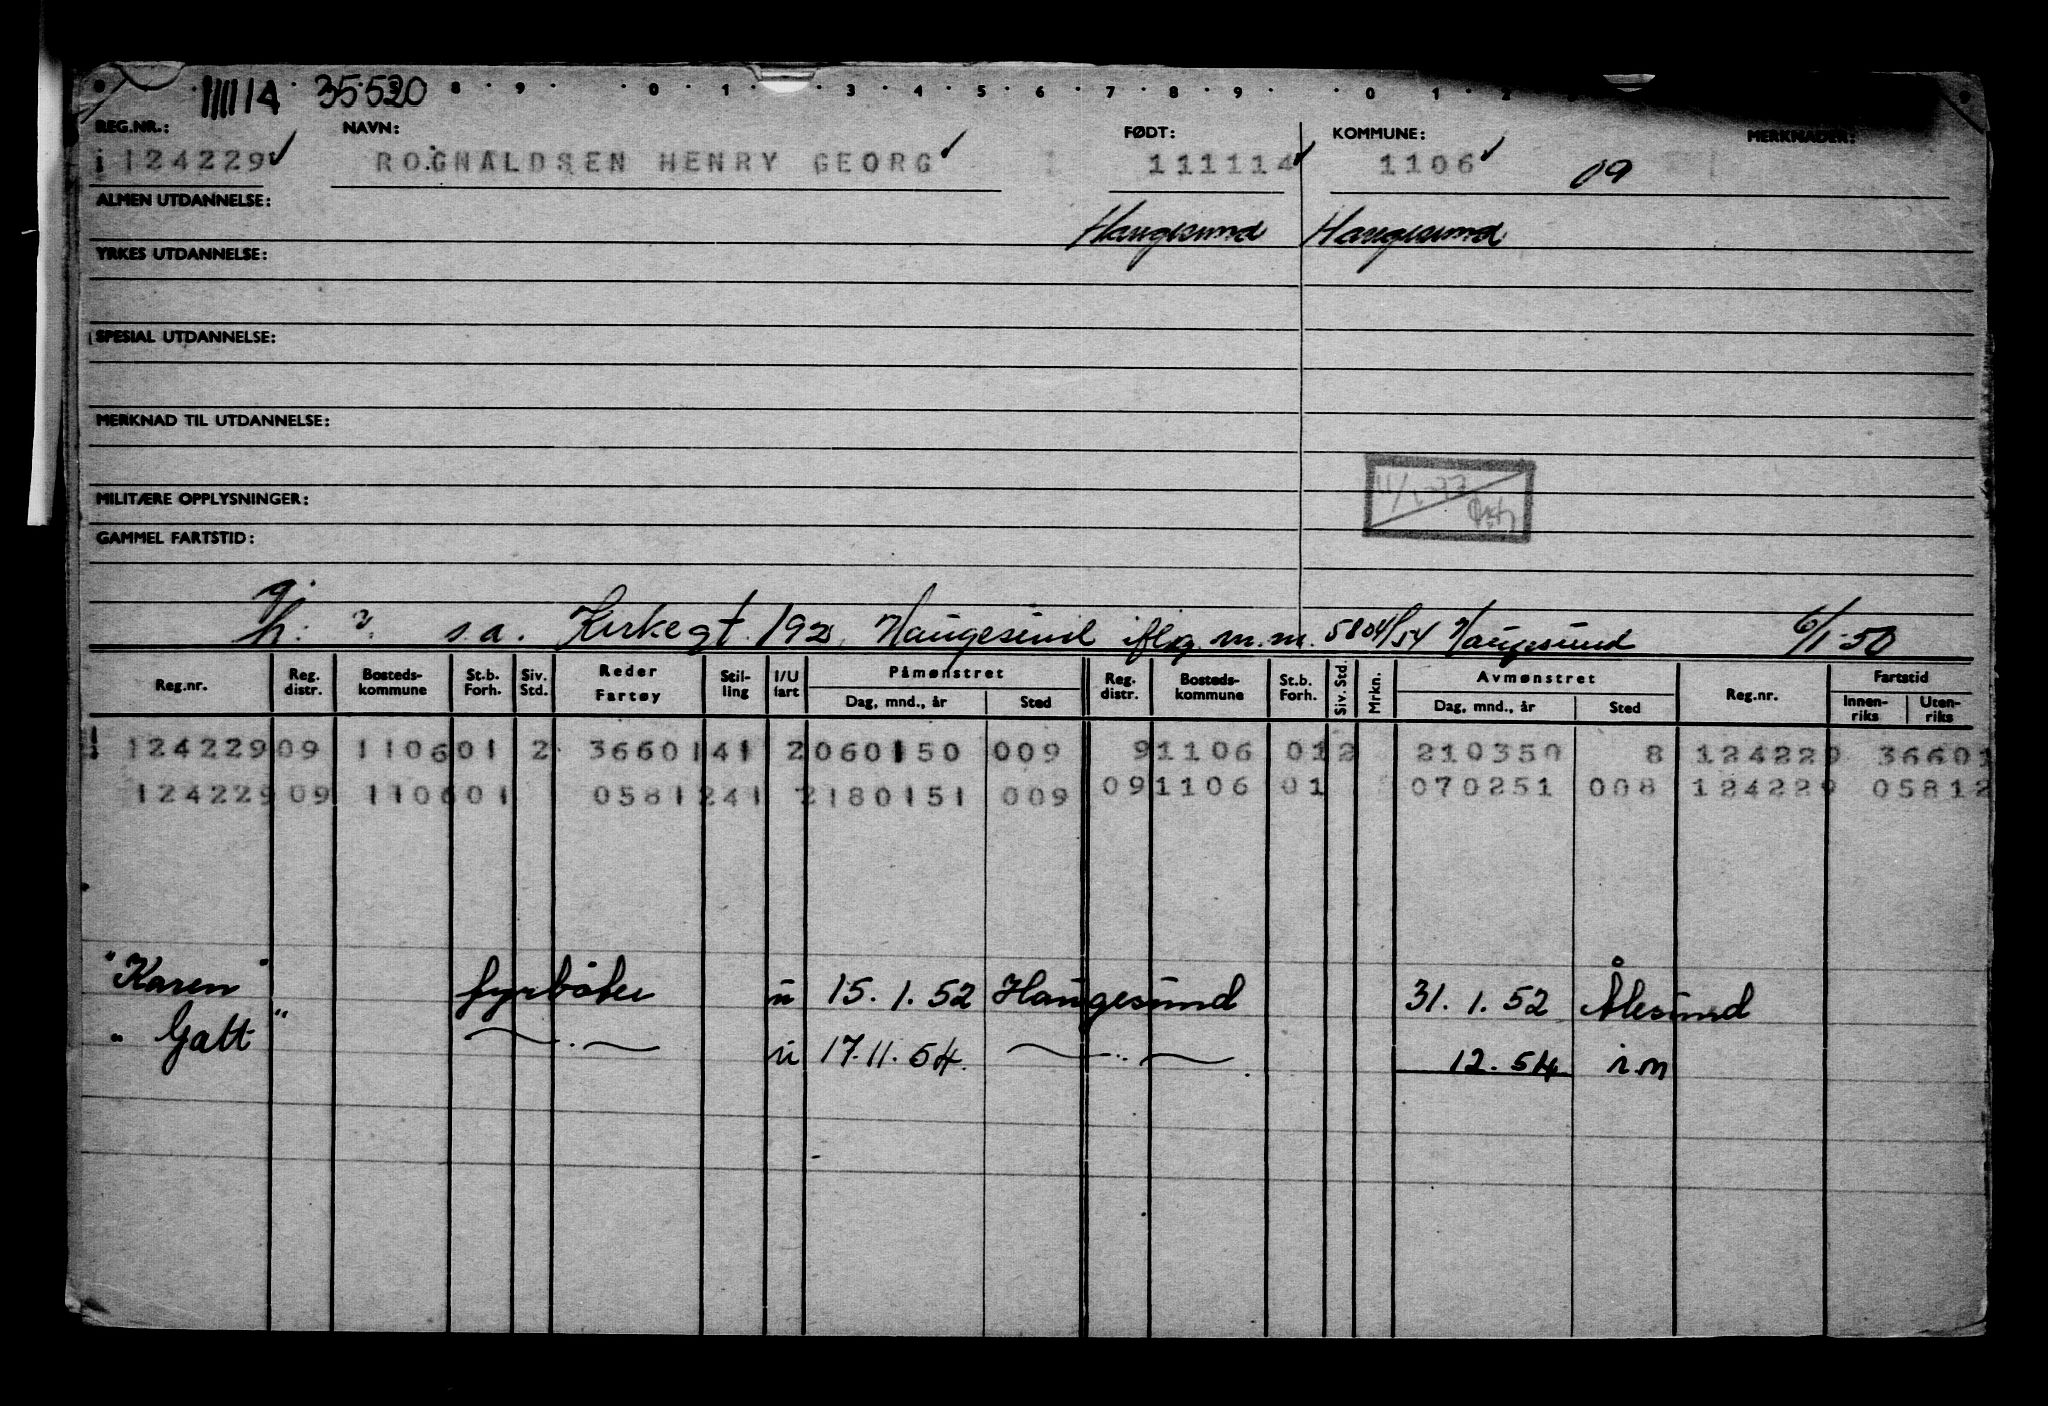 111114 35520 8 9 0 1 3 4 5 6 7 8 9 0 1 2
REG.NR.: NAVN: FØDT: KOMMUNE: MERKNADER:
124229 ROGNALDSEN HENRY GEORG 111114 1106 09
ALMEN UTDANNELSE: Haugesund Haugesund
YRKES UTDANNELSE:
SPESIAL UTDANNELSE:
MERKNAD TIL UTDANNELSE:
MILITÆRE OPPLYSNINGER:
GAMMEL FARTSTID:
g.
h: ?. s.a. Kirkegt. 192, Haugesund iflg. m.m. 5804/54 Haugesund 6/1-50
Reg.nr. Reg. distr. Bosteds-kommune St.b. Forh. Siv. Std. Reder Fartøy Stil-ling I/U fart Påmønstret Reg. distr. Bosteds-kommune St.b. Forh. Siv. Std. Mrkn. Avmønstret Reg.nr. Fartstid
Dag, mnd., år Sted Dag, mnd., år Sted Innen-riks Uten-riks
124229 09 1106 01 2 36601 41 2 060150 009 9 1106 01 2 210350 8 124229 36601
124229 09 1106 01 05812 41 2 180151 009 09 1106 01 070251 008 124229 05812
"Karen" fyrbøter u 15.1.52 Haugesund 31.1.52 Ålesund
"Gatt" —〃— u 17.11.54 —〃— 12.54 i.m